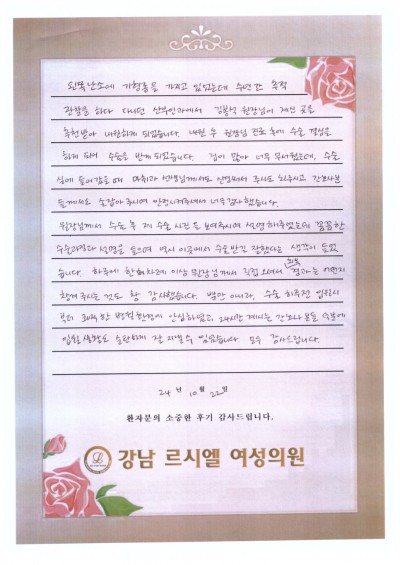 왼쪽 난소에 기형종을 가지고 있었는데 수년간 추적
관찰을 하다 다니던 산부인과에서 김봉석 원장님이 계신 곳을
추천받아 내원하게 되었습니다. 내원 후 원장님 진료 후에 수술 결정을
하게 되어 수술을 받게 되었습니다. 겁이 많아 너무 무서웠는데, 수술
실에 들어갔을 때 마취과 선생님께서도 신경써서 주시고 간호사분
들께서도 손잡아주시며 안정시켜주셔서 너무 감사했습니다.
원장님께서 수술 후 제 수술 사진도 보여주시며 설명해주셨는데 꼼꼼한
수술과정과 설명을 들으며 역시 이곳에서 수술받길 잘했다는 생각이 들었
습니다. 하루에 한 회차례 이상 원장님께서 직접 오셔서 회복 결과는 어떤지
챙겨 주시는 것도 참 감사했습니다. 뿐만 아니라, 수술 하루전 입원시
부터 쾌적한 병원환경에 안심하였고, 24시간 계시는 간호사분들 덕분에
입원생활도 순탄하게 잘 지낼 수 있었습니다. 모두 감사드립니다.
24 년 10 월 22 일
환자분의 소중한 후기 감사드립니다.
강남 르시엘 여성의원